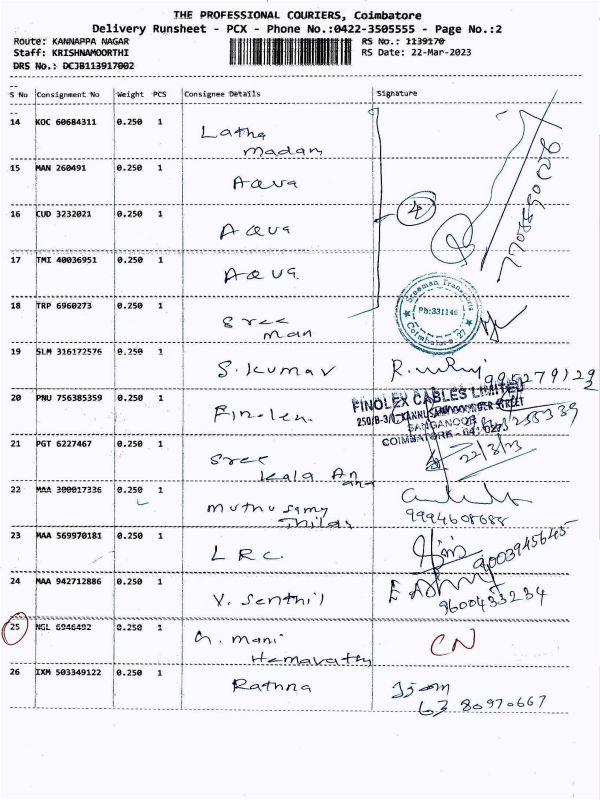 THE PROFESSIONAL COURIERS, Coimbatore
Delivery Runsheet - PCX - Phone No.:0422-3505555 - Page No.:2
Route: KANNAPPA NAGAR RS No.: 1139170
Staff: KRISHNAMOORTHI RS Date: 22-Mar-2023
DRS No.: DCJB113917002
S No Consignment No Weight PCS Consignee Details Signature
14 KOC 60684311 0.250 1 Latha
Madam
15 MAN 260491 0.250 1 Aqua
16 CUD 3232021 0.250 1 Aqua
4
17 TMI 40036951 0.250 1 Aqua
Sreeman Transports
Ph:331146
Coimbatore. 27
18 TRP 6960273 0.250 1 Sree
man
19 SLM 316172576 0.250 1 S.Kumar
20 PNU 756385359 0.250 1 Finolex
FINOLEX CABLES LIMITED
SANGANOOR
21 PGT 6227467 0.250 1 Sree
Kala
22/3/23
22 MAA 300017336 0.250 1 Muthu Samy
9994608688
23 MAA 569970181 0.250 1 L R C.
9003945645
24 MAA 942712886 0.250 1 V. Senthil
9600433234
25 NGL 6946492 0.250 1 Mani
Hemavathy
CN
26 IXM 503349122 0.250 1 Rathna
6380970667